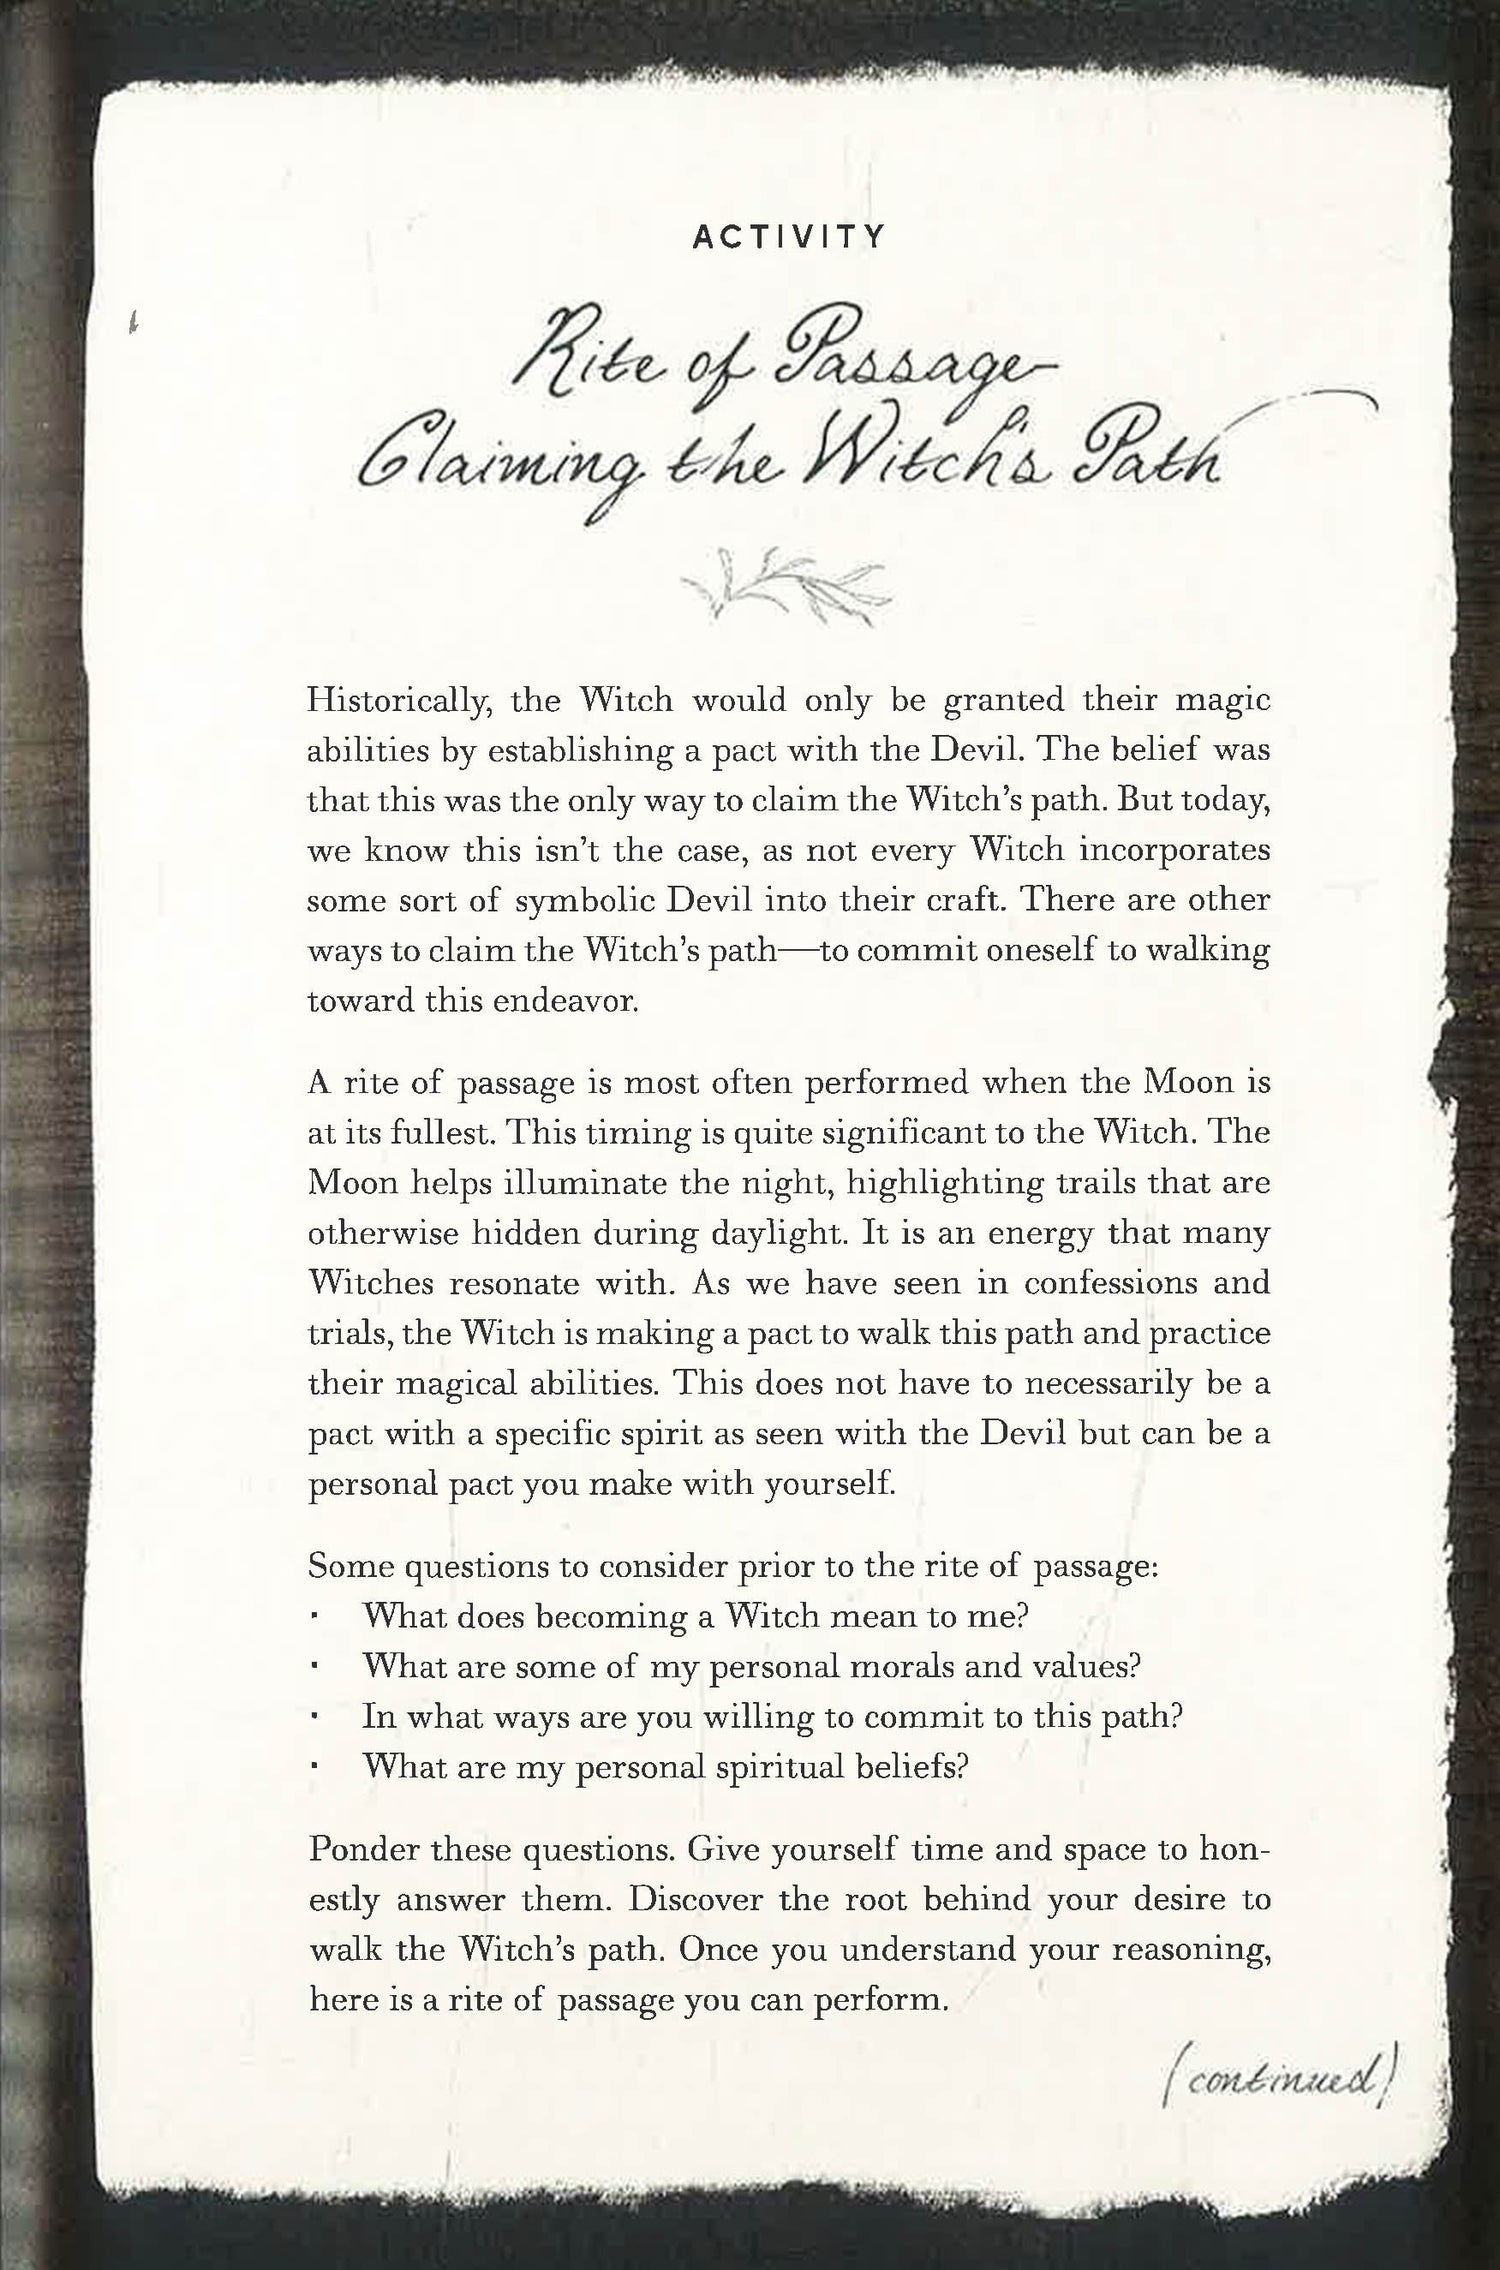 ACTIVITY
Rite of Passage
Claiming the Witch's Path
Historically, the Witch would only be granted their magic
abilities by establishing a pact with the Devil. The belief was
that this was the only way to claim the Witch's path. But today,
we know this isn't the case, as not every Witch incorporates
some sort of symbolic Devil into their craft. There are other
ways to claim the Witch's path—to commit oneself to walking
toward this endeavor.
A rite of passage is most often performed when the Moon is
at its fullest. This timing is quite significant to the Witch. The
Moon helps illuminate the night, highlighting trails that are
otherwise hidden during daylight. It is an energy that many
Witches resonate with. As we have seen in confessions and
trials, the Witch is making a pact to walk this path and practice
their magical abilities. This does not have to necessarily be a
pact with a specific spirit as seen with the Devil but can be a
personal pact you make with yourself.
Some questions to consider prior to the rite of passage:
· What does becoming a Witch mean to me?
· What are some of my personal morals and values?
· In what ways are you willing to commit to this path?
· What are my personal spiritual beliefs?
Ponder these questions. Give yourself time and space to hon-
estly answer them. Discover the root behind your desire to
walk the Witch's path. Once you understand your reasoning,
here is a rite of passage you can perform.
(continued)